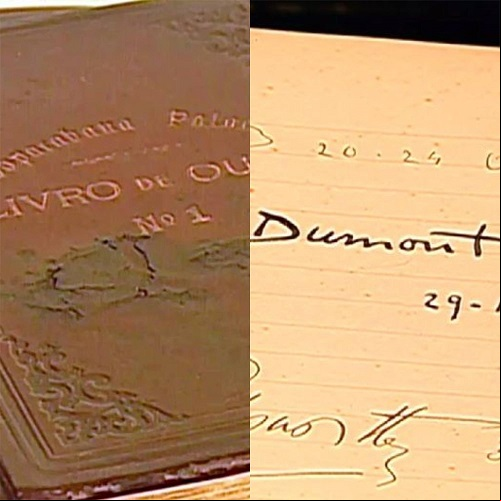 opacabana Palac
LIVRO DE OU
No 1
20.24
Dumont
29-